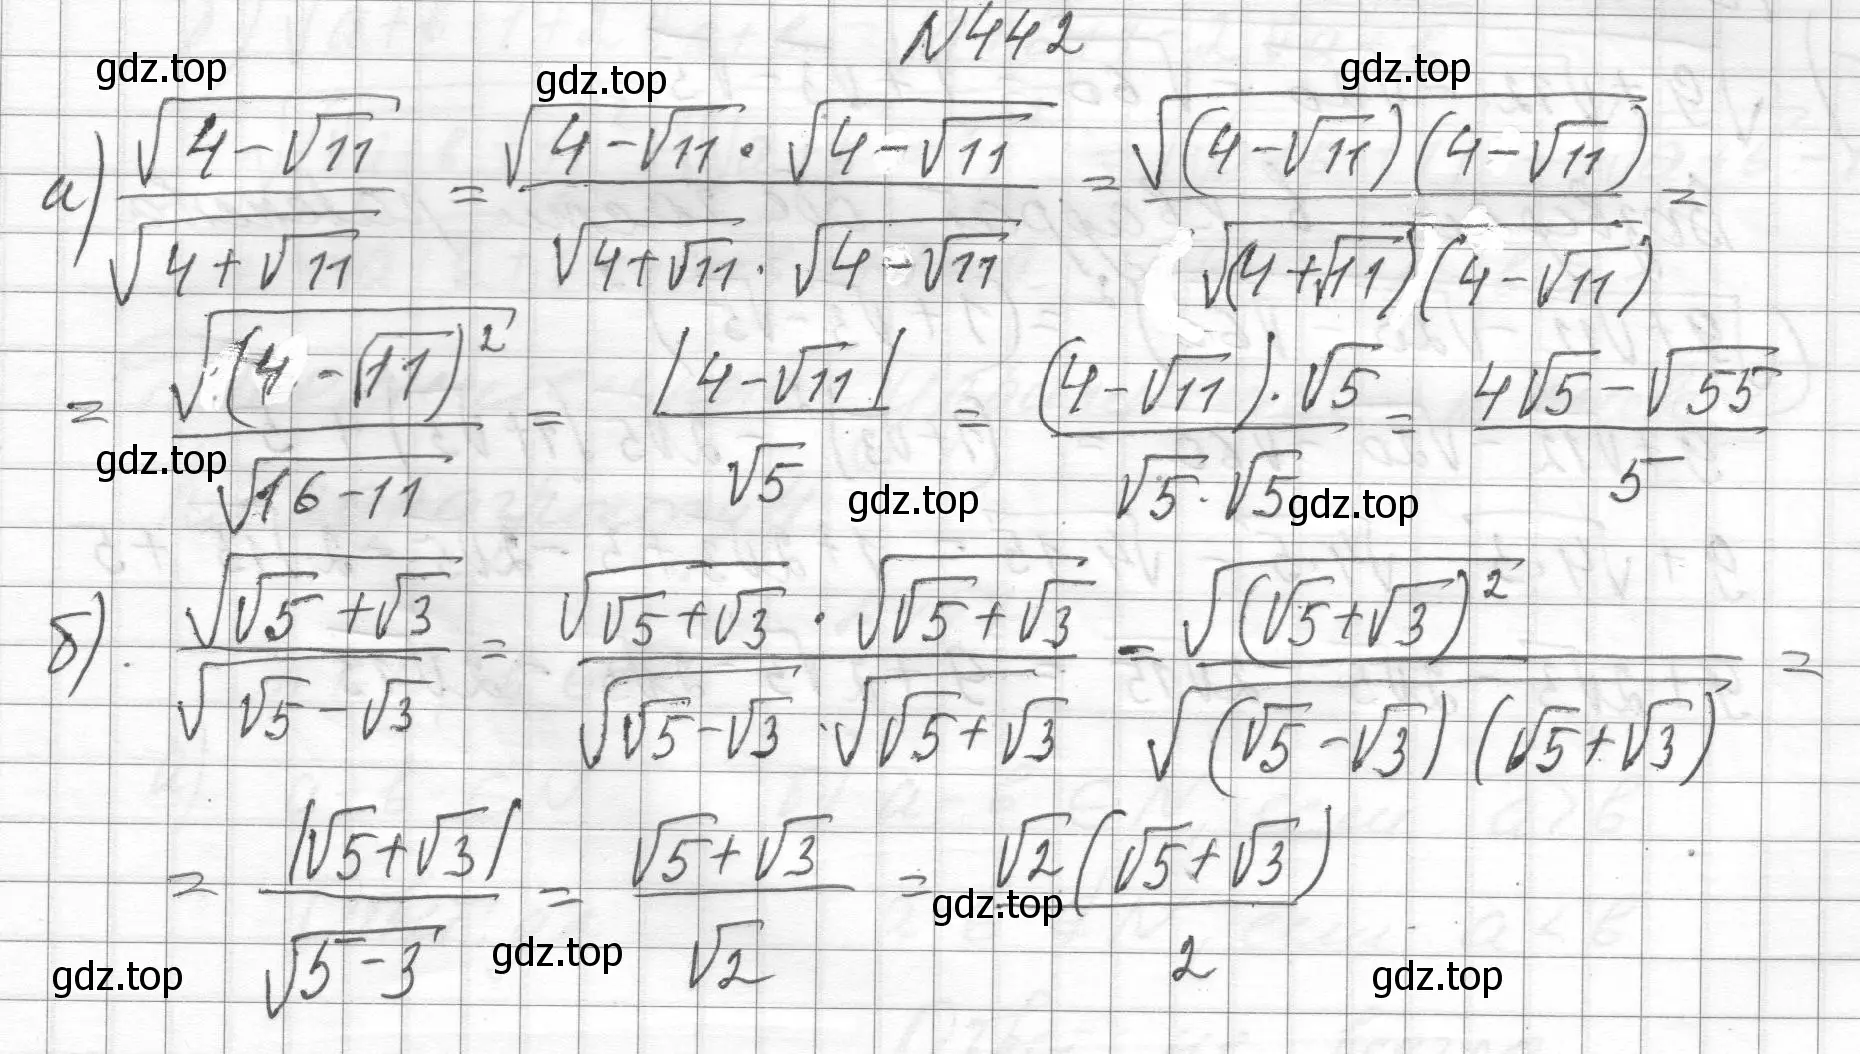 N442
gdz.top gdz.top gdz.top
а) √(4-√11) / √(4+√11) = √(4-√11) · √(4-√11) / √(4+√11) · √(4-√11) = √((4-√11)(4-√11)) / √((4+√11)(4-√11)) =
= √((4-√11)²) / √(16-11) = |4-√11| / √5 = (4-√11)·√5 / √5·√5 = 4√5-√55 / 5
gdz.top gdz.top gdz.top
б). √(√5+√3) / √(√5-√3) = √(√5+√3) · √(√5+√3) / √(√5-√3) · √(√5+√3) = √((√5+√3)²) / √((√5-√3)(√5+√3)) =
= |√5+√3| / √(5-3) = √5+√3 / √2 = √2(√5+√3) / 2
gdz.top gdz.top gdz.top gdz.top